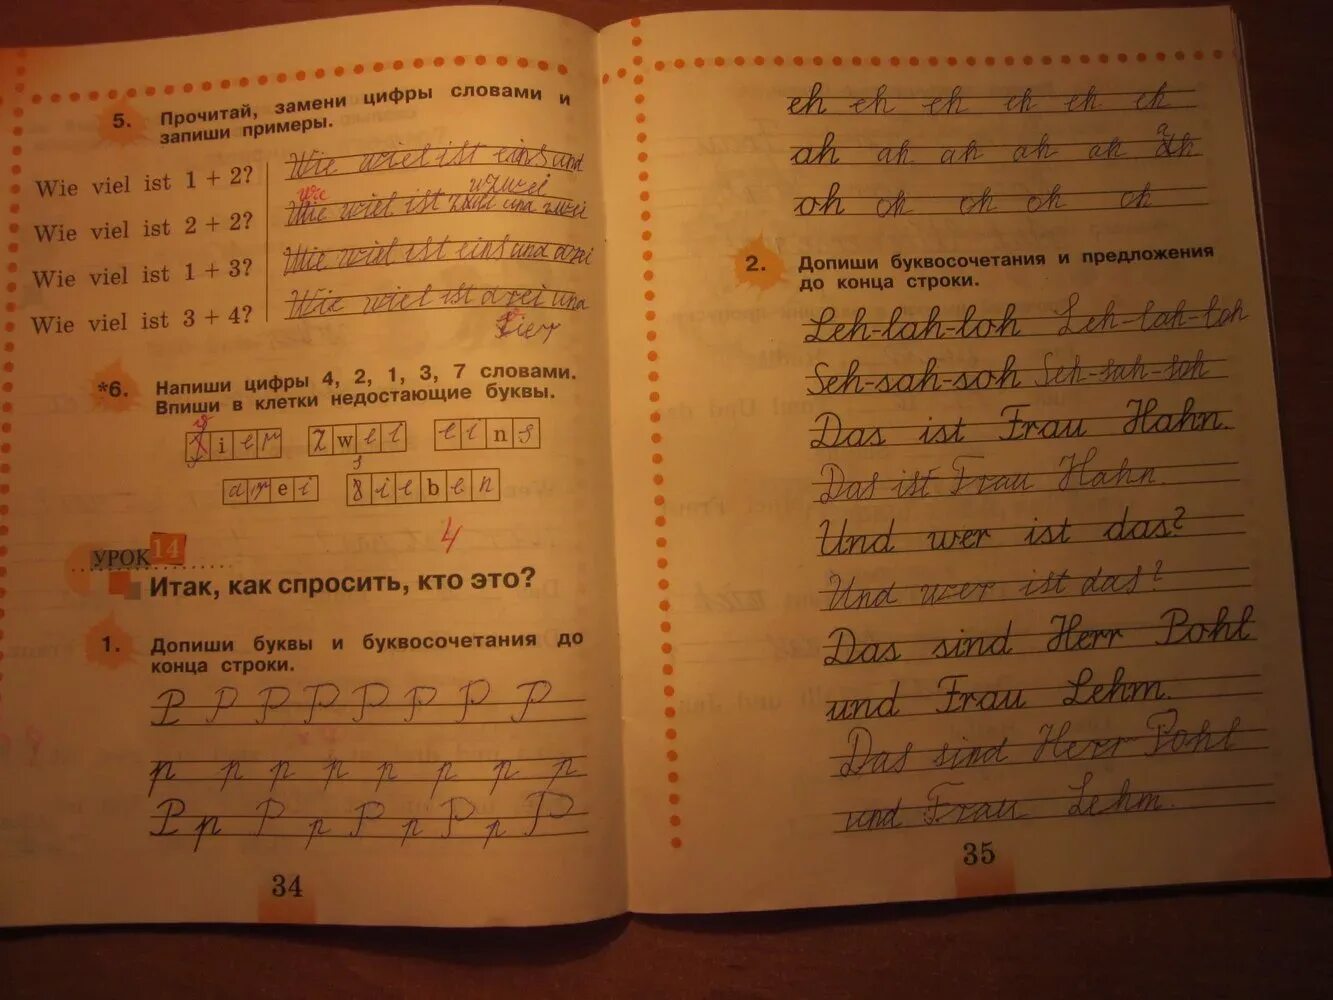 5. Прочитай, замени цифры словами и
запиши примеры.
Wie viel ist 1 + 2? Wie viel ist eins und
zwei
Wie viel ist 2 + 2? wie Wie viel ist zwei und zwei
Wie viel ist 1 + 3? Wie viel ist eins und drei
Wie viel ist 3 + 4? Wie viel ist drei und
vier
*6. Напиши цифры 4, 2, 1, 3, 7 словами.
Впиши в клетки недостающие буквы.
vier zwei eins
drei sieben
4
УРОК 14
Итак, как спросить, кто это?
1. Допиши буквы и буквосочетания до
конца строки.
P P P P P P P P
p p p p p p p p
P p P p P p P p P
34
eh eh eh eh eh eh
ah ah ah ah ah ah
oh oh oh oh oh
2. Допиши буквосочетания и предложения
до конца строки.
Leh-lah-loh Leh-lah-loh
Seh-sah-soh Seh-sah-soh
Das ist Frau Hahn.
Das ist Frau Hahn.
Und wer ist das?
Und wer ist das?
Das sind Herr Pohl
und Frau Lehm.
Das sind Herr Pohl
und Frau Lehm.
35